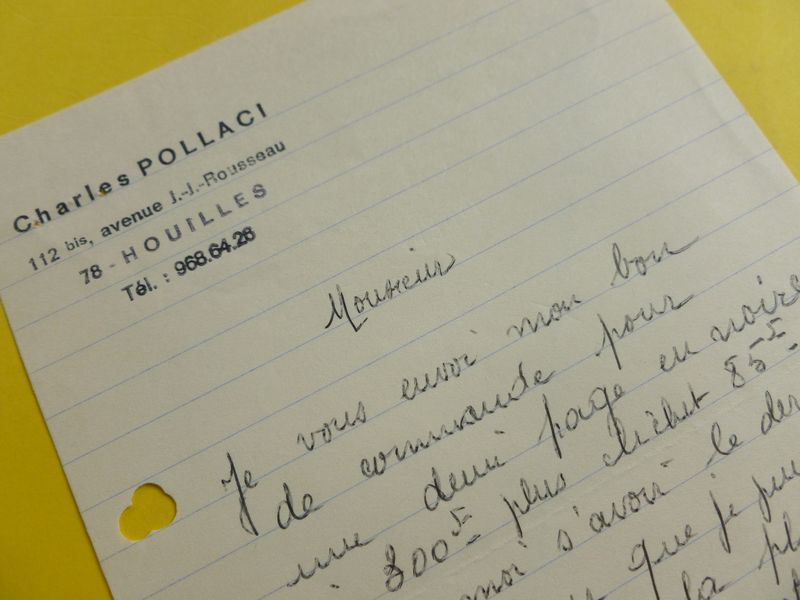 Charles POLLACI
112 bis, avenue J.-J.-Rousseau
78 - HOUILLES
Tél. : 968.64.26
Monsieur
Je vous envoi mon bon
de commande pour
une demi page en noire
à 800F plus clichet 85F-
moi s'avoir le der
que je peu
la pl